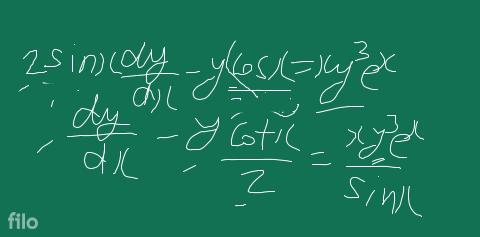 2sinx dy/dx - y cosx = xy³eˣ
dy/dx - y cotx/2 = xy³eˣ/sinx
filo